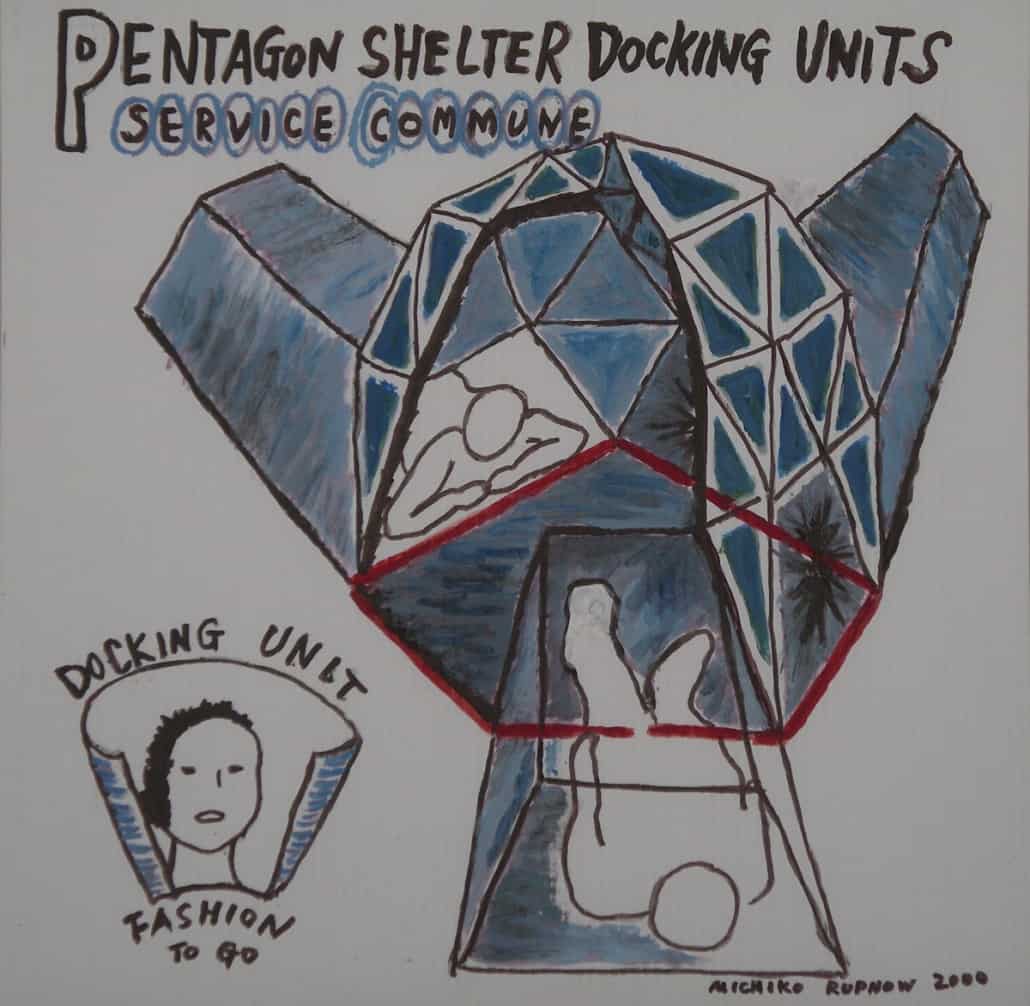 PENTAGON SHELTER DOCKING UNITS
SERVICE COMMUNE
DOCKING UNIT
FASHION
TO GO
MICHIKO RUPNOW 2000